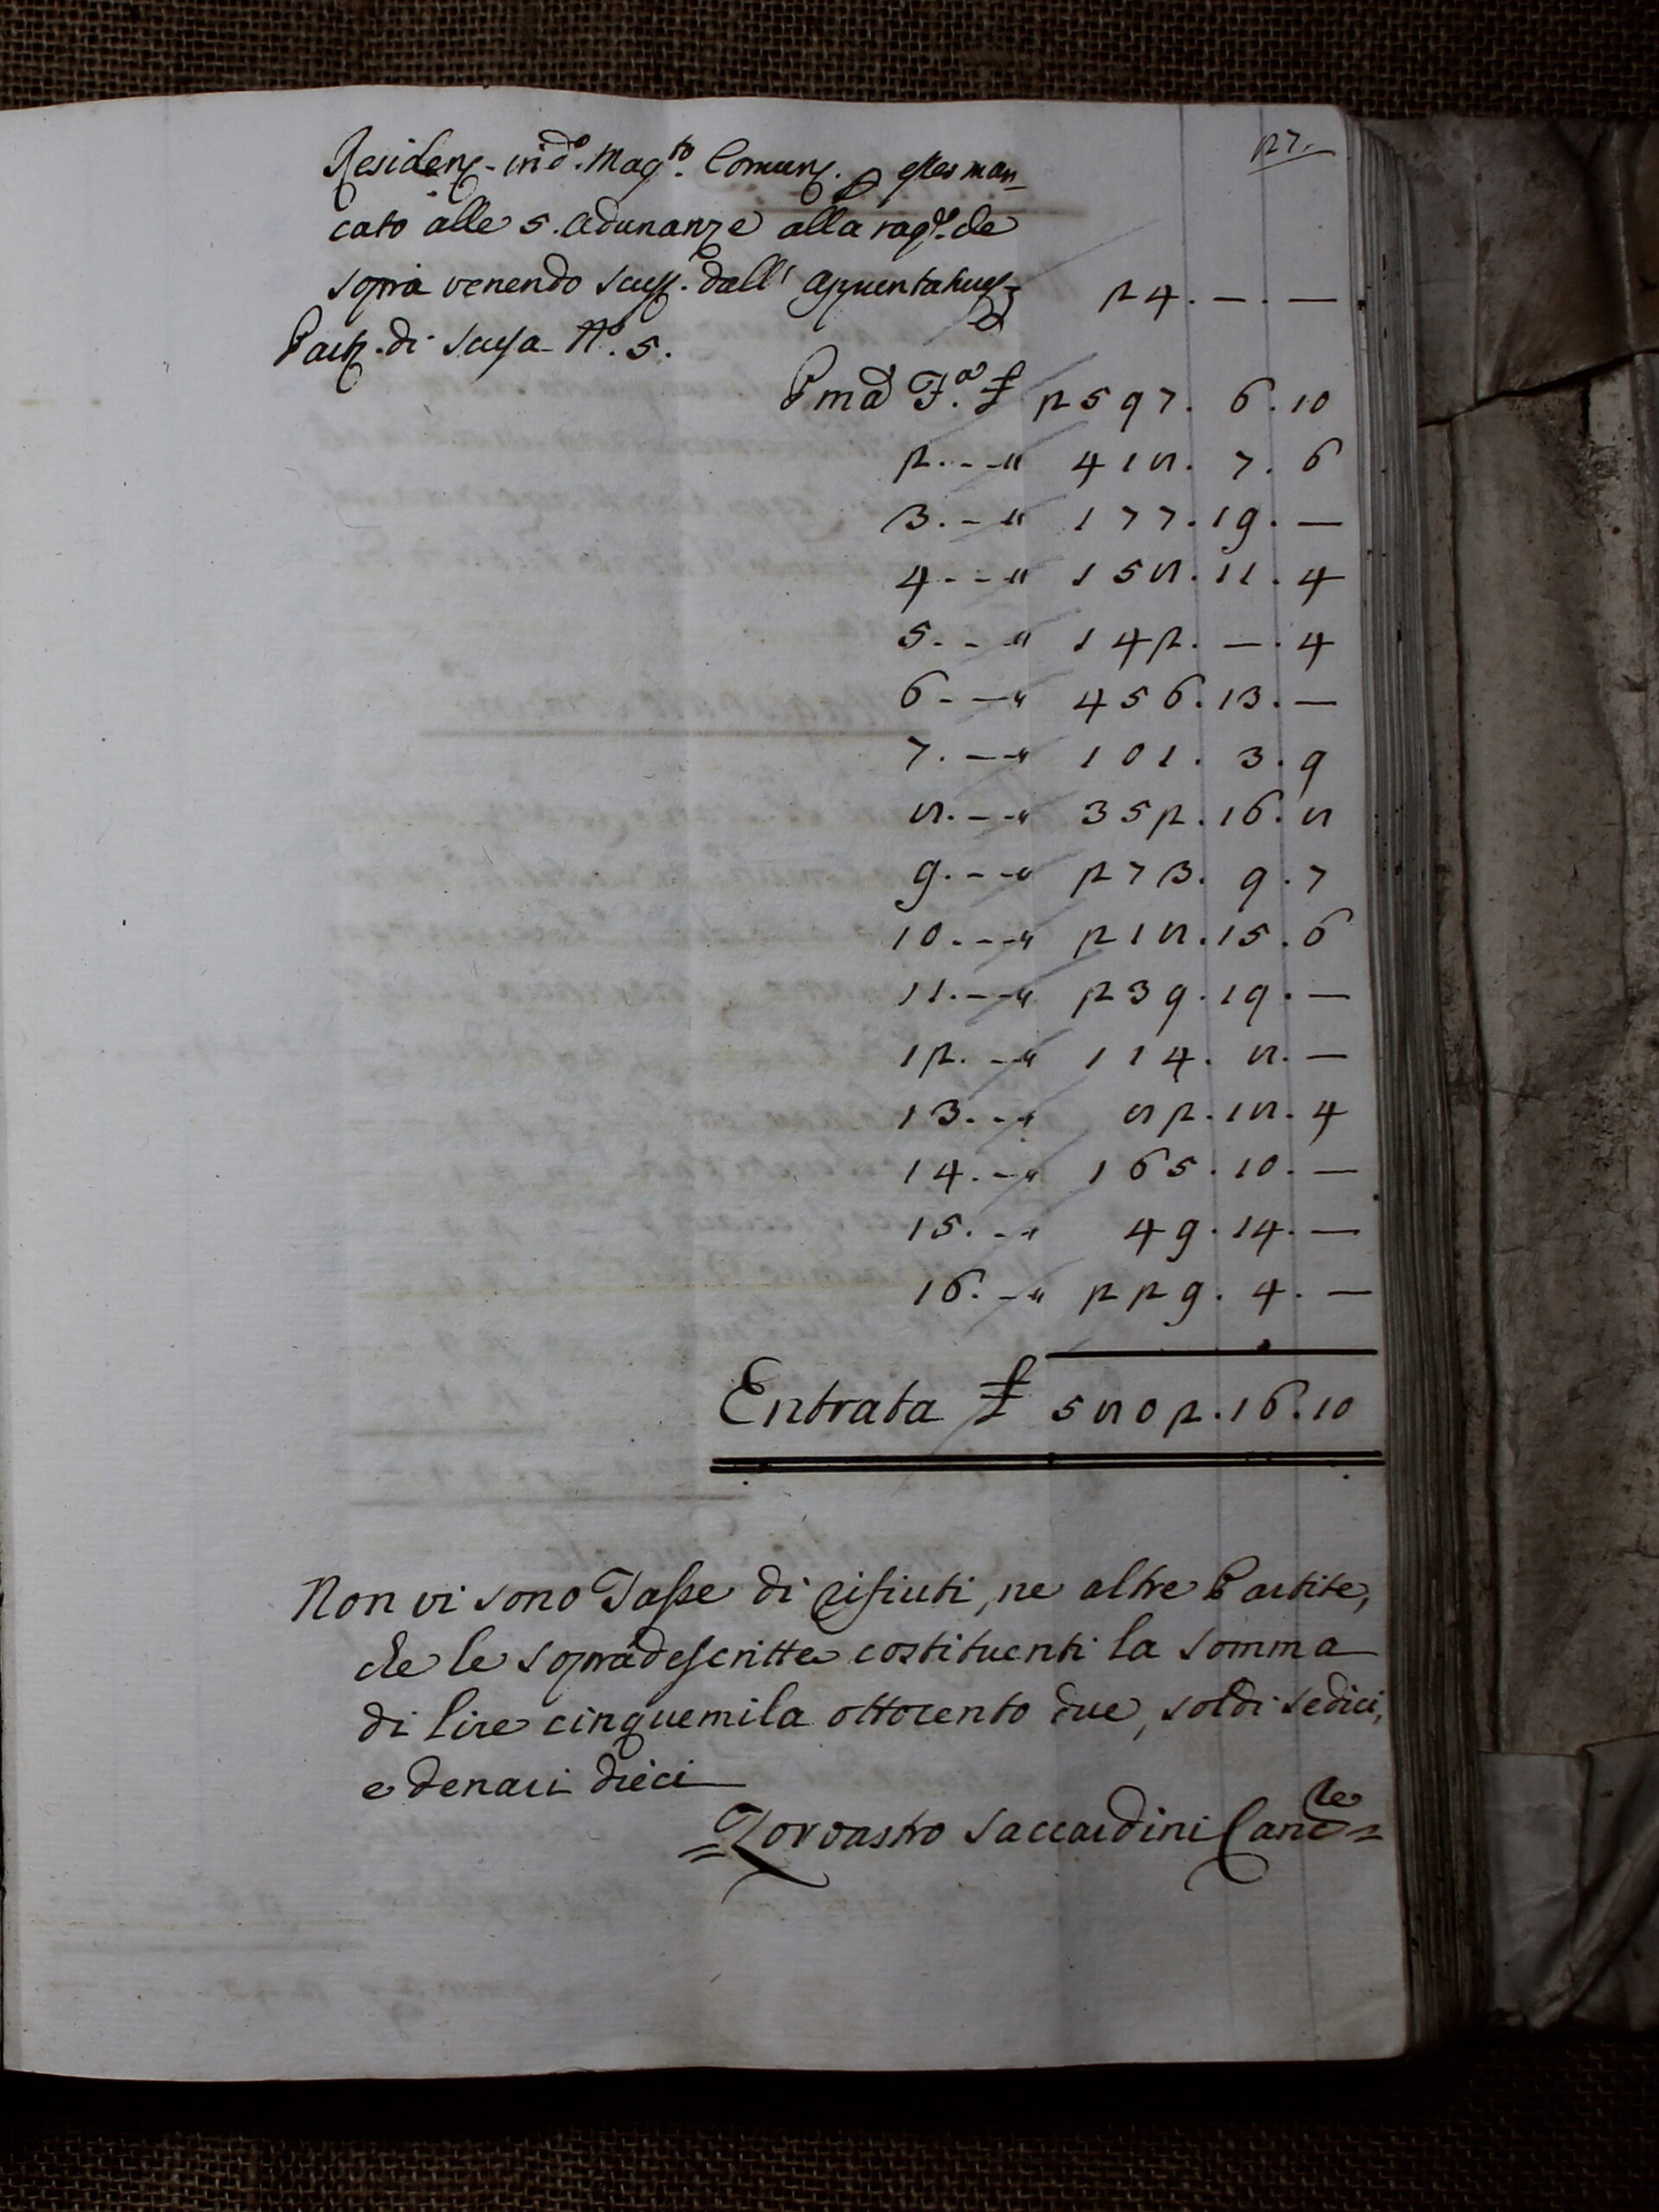 27.
Residenz. in d.º Mag.to Comun. p esser man_
cato alle 5. Adunanze alla rag.e de
sopra venendo scus. dall' Appuntature 24. — . —
Parz. di scusa N.º 5.
P.ma F.a £ 2597. 6. 10
2. - - " 418. 7. 6
3. - " 177. 19. —
4. - - " 158. 11. 4
5. - - " 142. — . 4
6. — " 456. 13. —
7. — " 101. 3. 9
8. - - " 352. 16. 8
9. - - " 273. 9. 7
10. - - " 218. 15. 6
11. - - " 239. 19. —
12. - - " 114. 8. —
13. - - " 82. 18. 4
14. - " 165. 10. —
15. - - " 49. 14. —
16. - " 229. 4. —
Entrata £ 5802. 16. 10
Non vi sono Tasse di rifiuti, ne altre Partite,
che le sopradescritte costituenti la somma
di lire cinquemila ottocento due, soldi sedici,
e denari dieci
= Zoroastro Saccardini Canc.re =